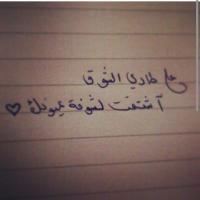 على طاري الشوق
آشتقت لشوفة عيونك ♡